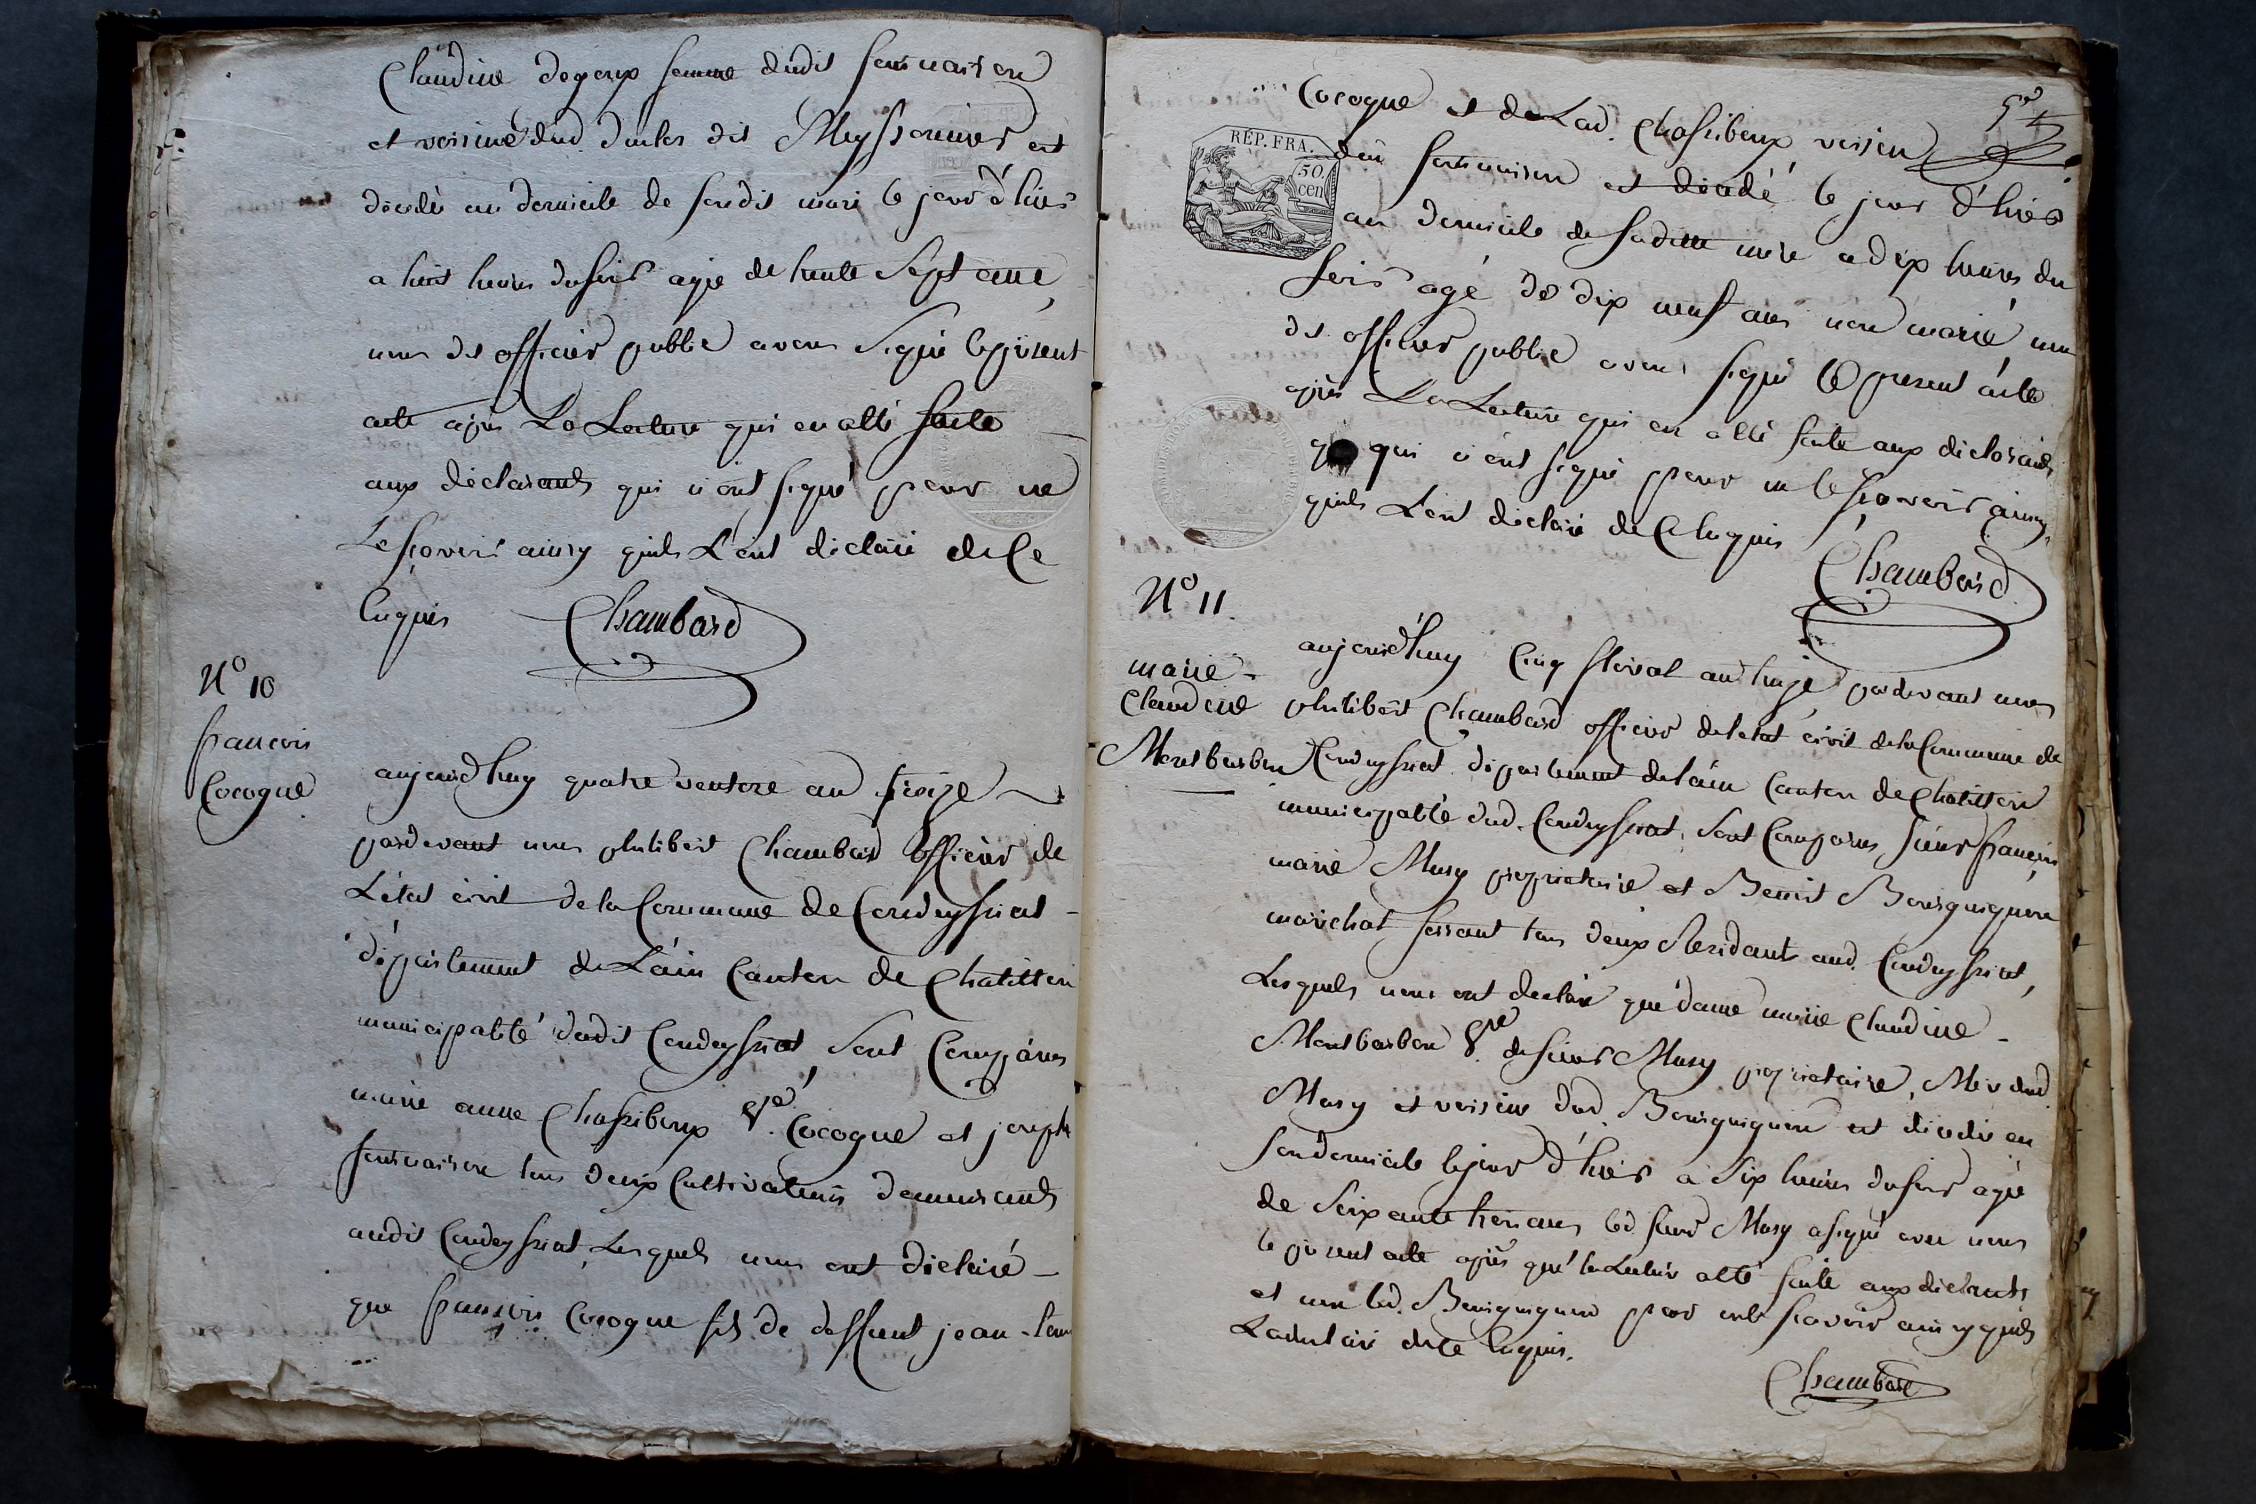 Claudine degoux femme dudit fontvaisson
et voisine dud. dit Meyssonnier est
décédé au domicile de sondit mari le jour d'hier
a huit heures du soir agée de trente Sept ans
nous dt officier public avons Signé le présent
acte après La Lecture qui en a été faite
aux déclarants qui n'ont signé pour ne
Le sçavoir ainsy quils L'ont déclaré de Ce
Enquis Chambard
N° 10
francois
Cocogne
aujourd'huy quatre ventose an treize
pardevant nous philibert Chambard officier de
L'état civil de la Commune de Condeyssiat
département de L'ain Canton de Chatillon
municipalité dudit Condeyssiat, Sont Comparus
marie anne Chassiboux Vve Cocogne et joseph
fontvaisson tous deux Cultivateurs demeurants
audit Condeyssiat, Lesquels nous ont déclaré
que francois Cocogne fils de deffunt jean-
Cocogne et de Lad. Chassiboux voisin
dud. fontvaison est décédé le jour d'hier
RÉP. FRA.
50.
cen
au domicile de sa ditte mère a dix heures du
soir agé de dix neuf ans non marié, nous
dt. officier public avons signé le present acte
après La Lecture qui en a été faite aux déclarants
qui n'ont signé pour ne le sçavoir ainsy
quils L'ont déclaré de Ce Enquis
Chambard
N° 11.
marie
Claudine
Montbarbon
aujourd'huy Cinq floréal an treize pardevant nous
philibert Chambard officier de l'etat civil de la Commune de
Condeyssiat département de l'ain Canton de Chatillon
municipalité dud. Condeyssiat, Sont Comparus, Sieur françois
marie Musy propriétaire et Benoit Bourguignon
maréchal ferrant tous deux Résidant aud. Condeyssiat,
Lesquels nous ont déclaré que dame marie Claudine
Montbarbon Vve de sieur Musy propriétaire, Mère dud.
Musy et voisine dud. Bourguignon est décédée en
son domicile le jour d'hier à Six heures du soir agée
de Soixante ans led. sieur Musy a signé avec nous
le présent acte après que la Lecture a été faite aux déclarants
et non led. Bourguignon pour ne le sçavoir ainsy quil
La déclaré de Ce Enquis.
Chambard